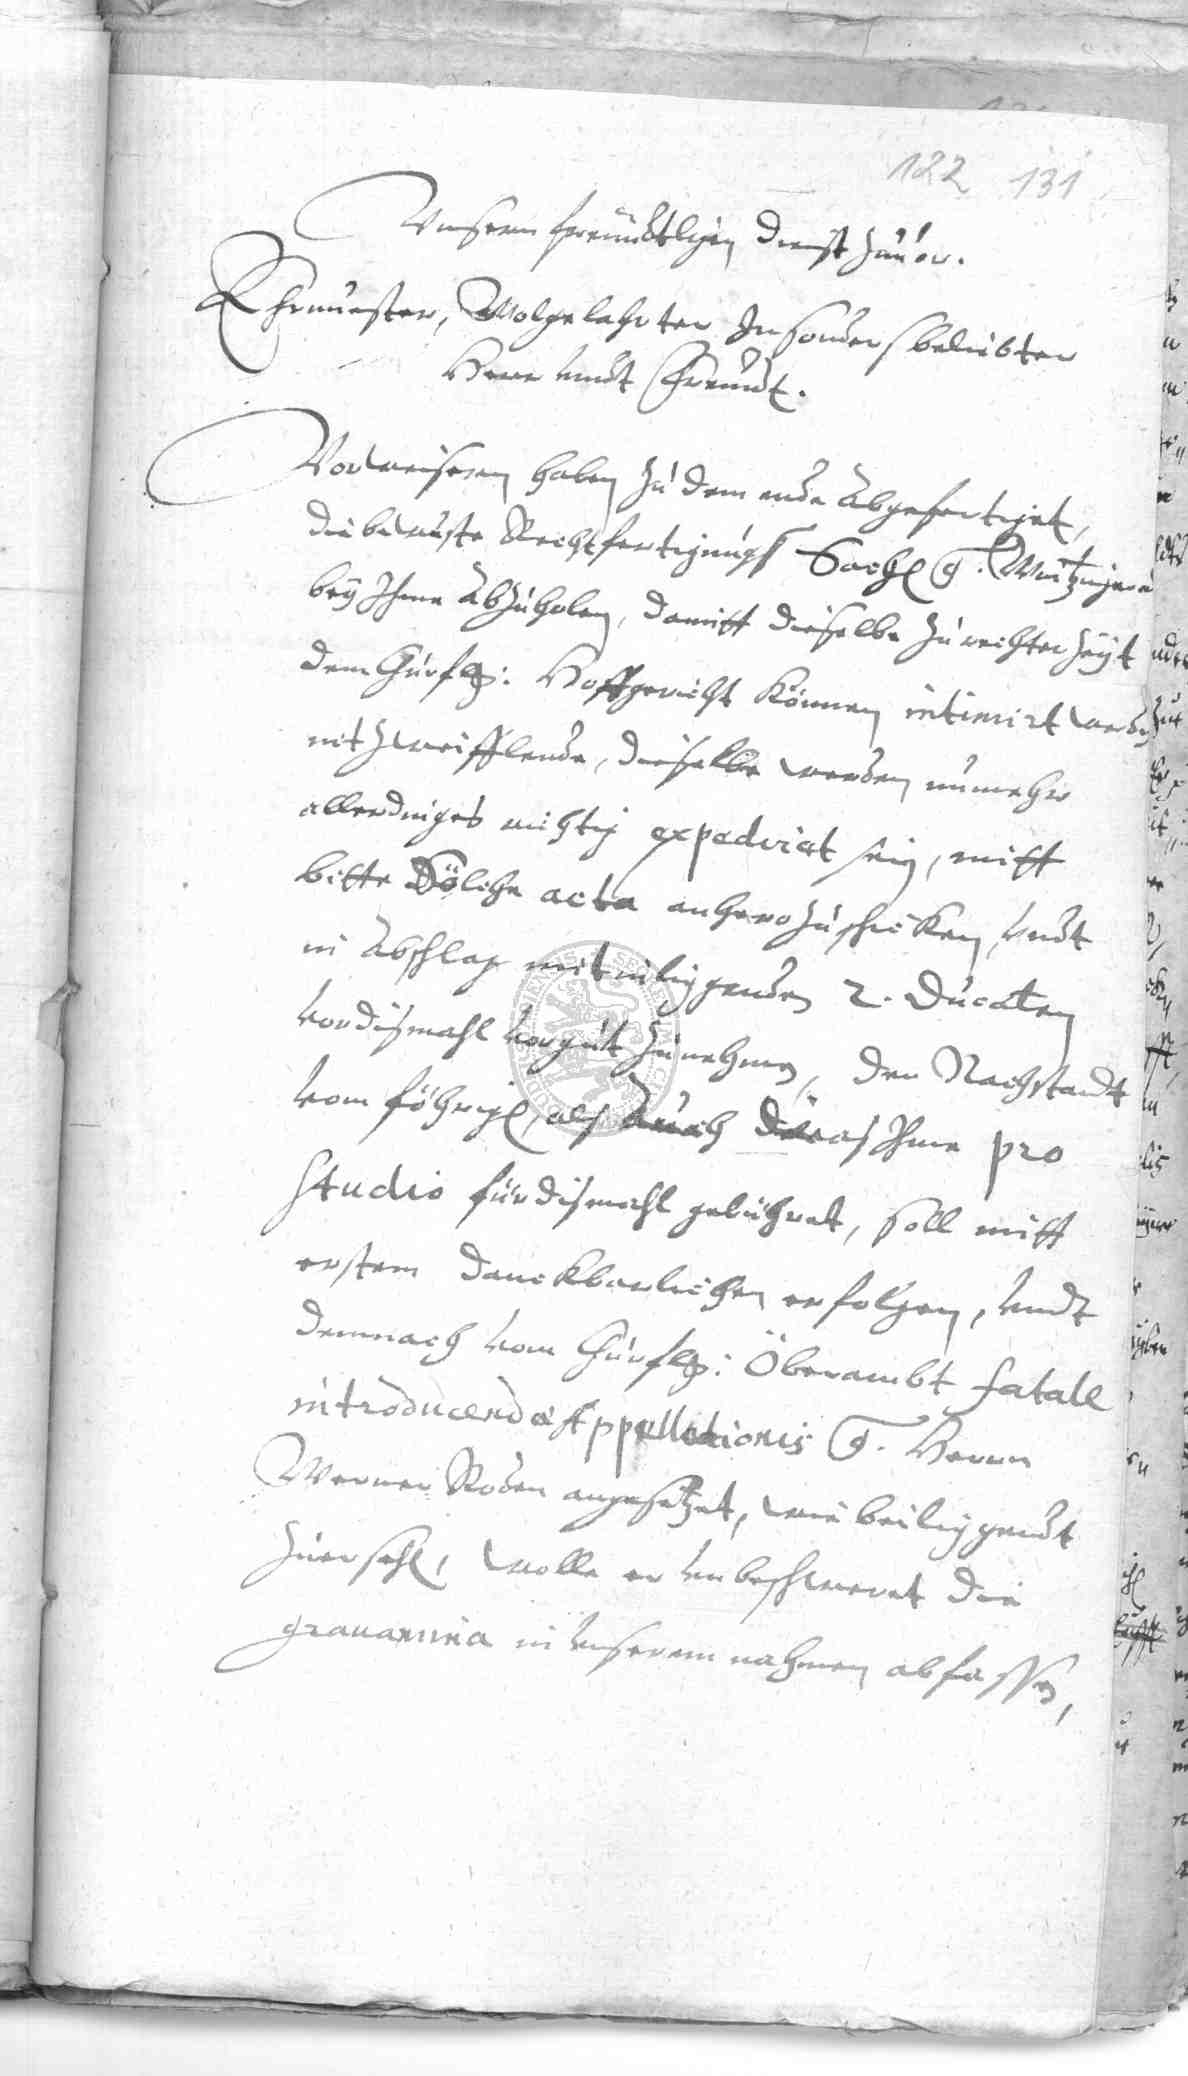 122 131
Unsern freundtlichen dienst zuuor.
Ehrnuester, Wolgelahrter Insonders beliebter
Herr undt Freundt.
Vorweisern haben zu dem ende abgefertiget,
die bewuste Rechtfertigungs Sach
bey Ihme abzuholen, damitt dieselbe zu rechter Zeyt
dem Churfl: Hoffgericht können intimirt werden
nit zweifflende, dieselbe werden nunmehr
allerdinges richtig expedirt sein, mitt
bitte Sölche acta anhero zuschicken, undt
in abschlag mit einliggenden 2. Ducaten
vordismahl vorgut zunehmen, der Nachstandt
vom föhrig, als auch Ihme pro
studio für dismahl gebühret, soll mitt
erstem danckbarlichen erfolgen, undt
demnach vom Churfl: Oberambt fatale
introducendæ Appellationis Herrn
Werner Roden angesetzet, wie beiliggendt
zuersehen, wolle er unbeschweret die
grauamina in unserem nahmen abfassen,